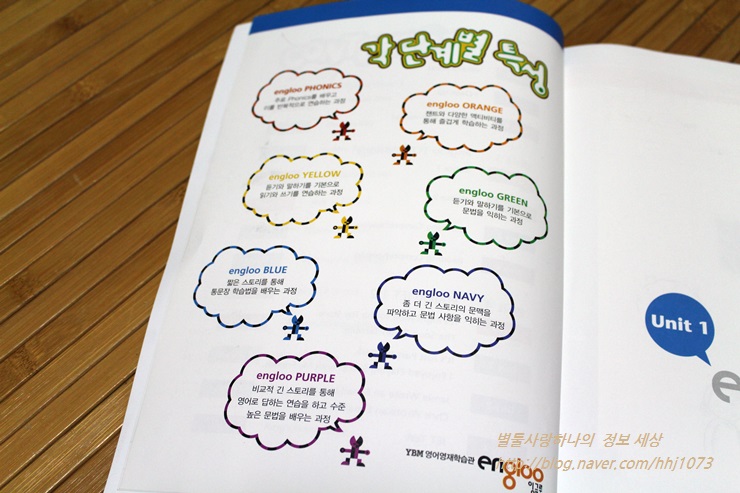 각 단계별 특성
engloo PHONICS
주요 Phonics를 배우고
이를 반복적으로 연습하는 과정
engloo ORANGE
챈트와 다양한 액티비티를
통해 즐겁게 학습하는 과정
engloo YELLOW
듣기와 말하기를 기본으로
읽기와 쓰기를 연습하는 과정
engloo GREEN
듣기와 말하기를 기본으로
문법을 익히는 과정
engloo BLUE
짧은 스토리를 통해
통문장 학습법을 배우는 과정
engloo NAVY
좀 더 긴 스토리의 문맥을
파악하고 문법 사항을 익히는 과정
engloo PURPLE
비교적 긴 스토리를 통해
영어로 답하는 연습을 하고 수준
높은 문법을 배우는 과정
YBM 영어영재학습관 engloo
Unit 1
별둘사랑하나의 정보 세상
http://blog.naver.com/hhj1073